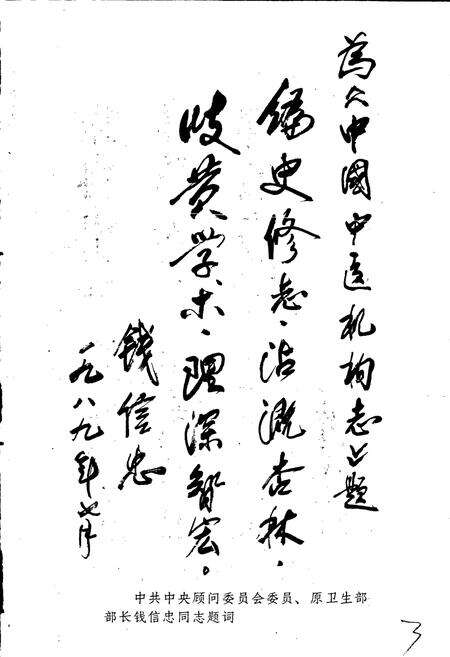 为《中国中医机构志》题
编史修志、沾溉杏林.
岐黄学术、理深智宏。
钱信忠
一九八九年七月
中共中央顾问委员会委员、原卫生部
部长钱信忠同志题词
3